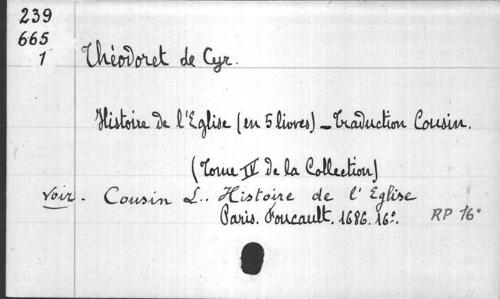 239
665
1
Théodoret de Cyr.
Histoire de l'Eglise (en 5 livres) _ Traduction Cousin.
(Tome IV de la Collection)
voir . Cousin L.. Histoire de l'Eglise
Paris. Foucault. 1686. 16°. RP 16°